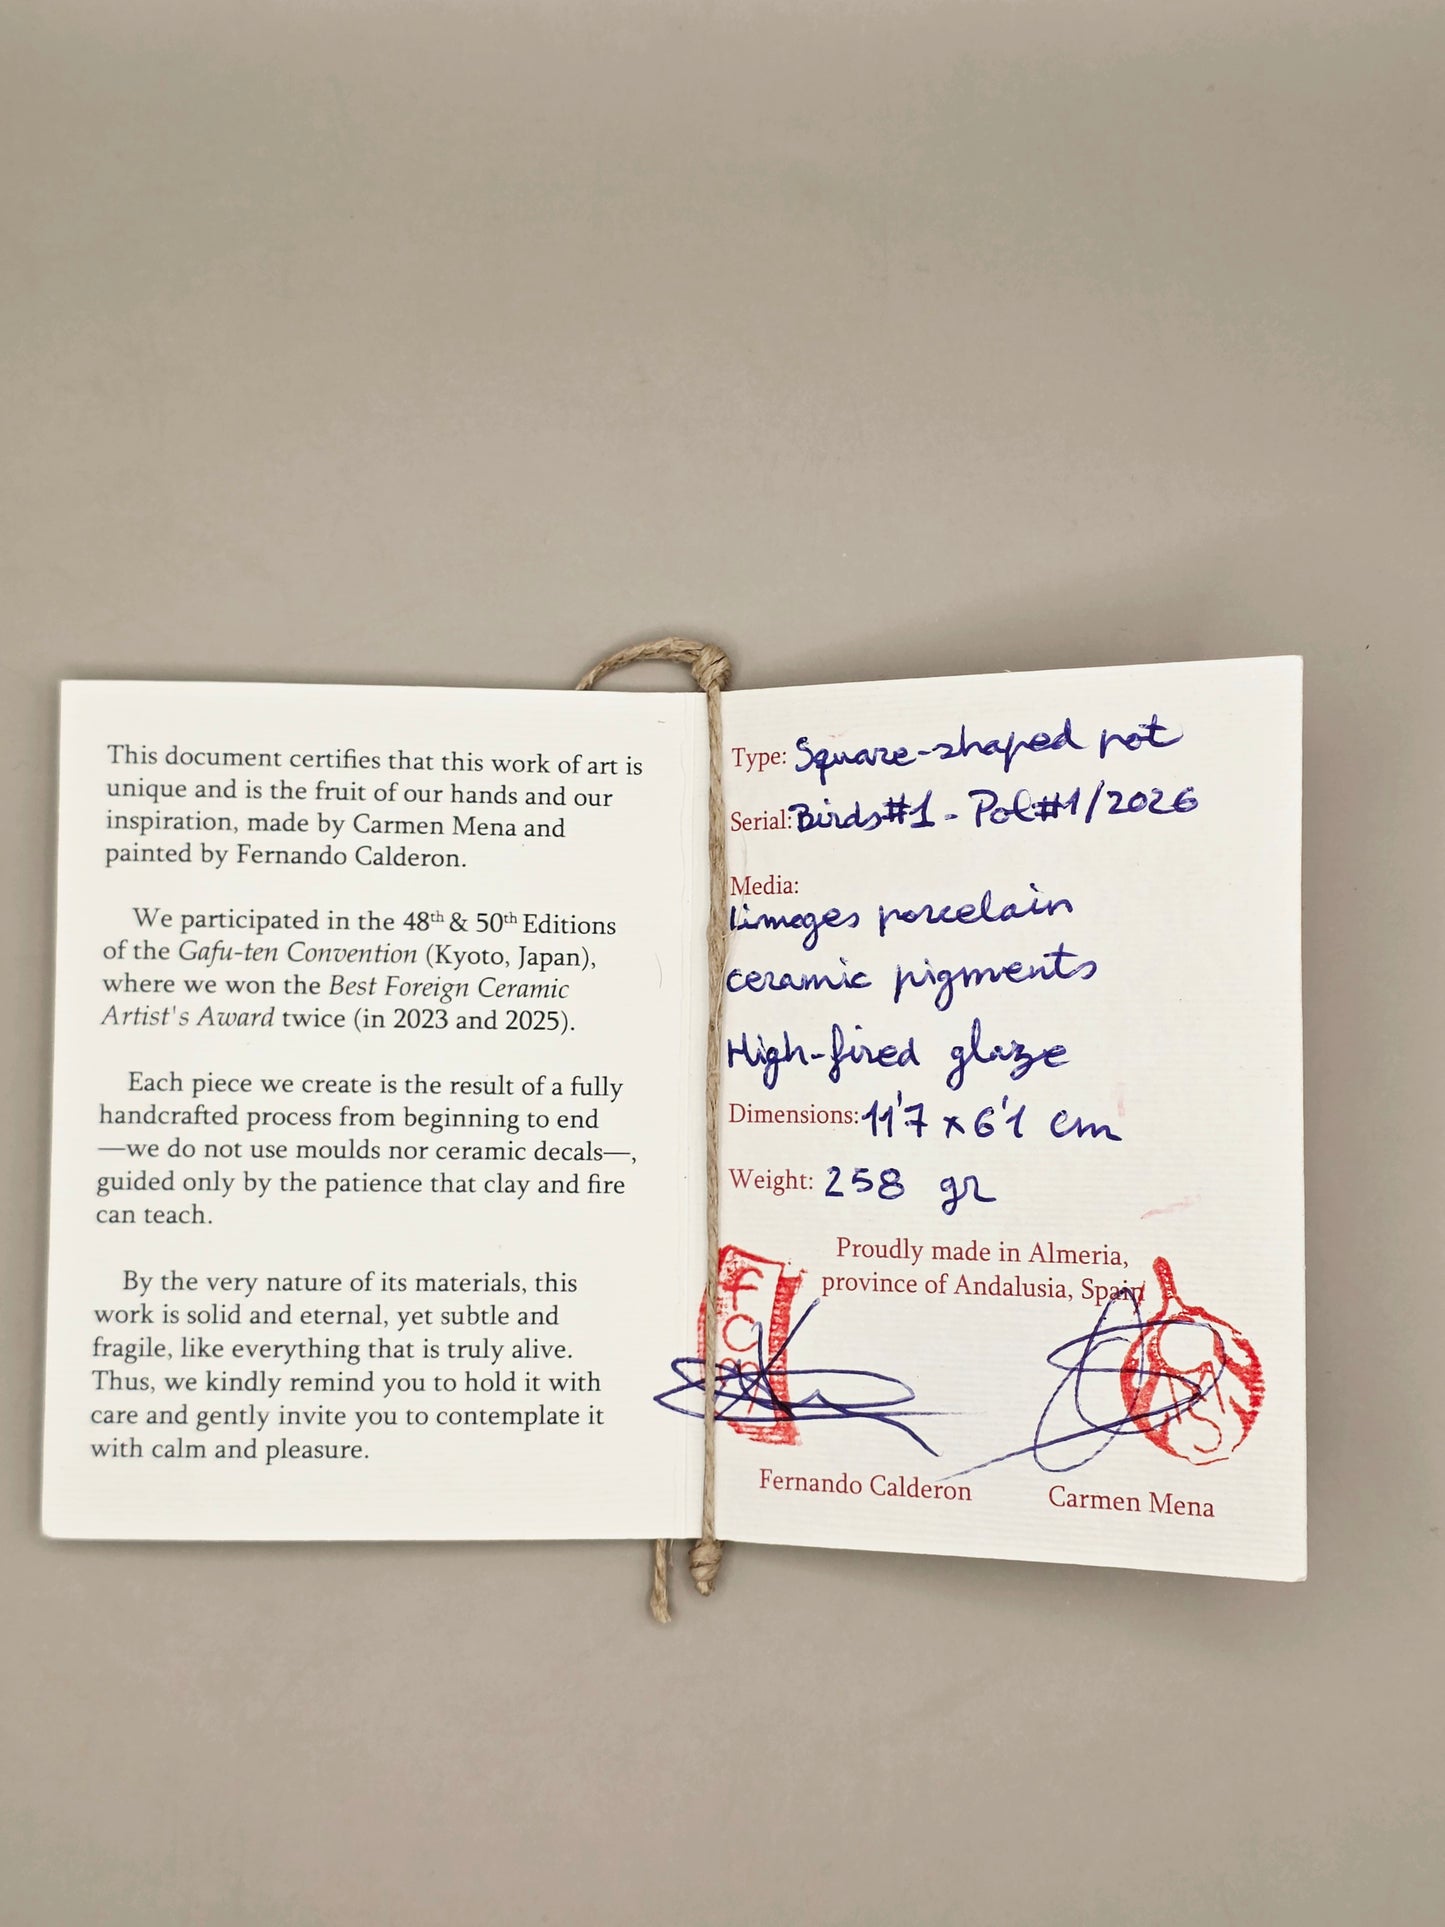 This document certifies that this work of art is
unique and is the fruit of our hands and our
inspiration, made by Carmen Mena and
painted by Fernando Calderon.
We participated in the 48th & 50th Editions
of the Gafu-ten Convention (Kyoto, Japan),
where we won the Best Foreign Ceramic
Artist's Award twice (in 2023 and 2025).
Each piece we create is the result of a fully
handcrafted process from beginning to end
—we do not use moulds nor ceramic decals—,
guided only by the patience that clay and fire
can teach.
By the very nature of its materials, this
work is solid and eternal, yet subtle and
fragile, like everything that is truly alive.
Thus, we kindly remind you to hold it with
care and gently invite you to contemplate it
with calm and pleasure.
Type: Square-shaped pot
Serial: Birds#1 - Pot#1/2026
Media:
Limoges porcelain
ceramic pigments
High-fired glaze
Dimensions: 11'7 x 6'1 cm
Weight: 258 gr
Proudly made in Almeria,
province of Andalusia, Spain
Fernando Calderon
Carmen Mena